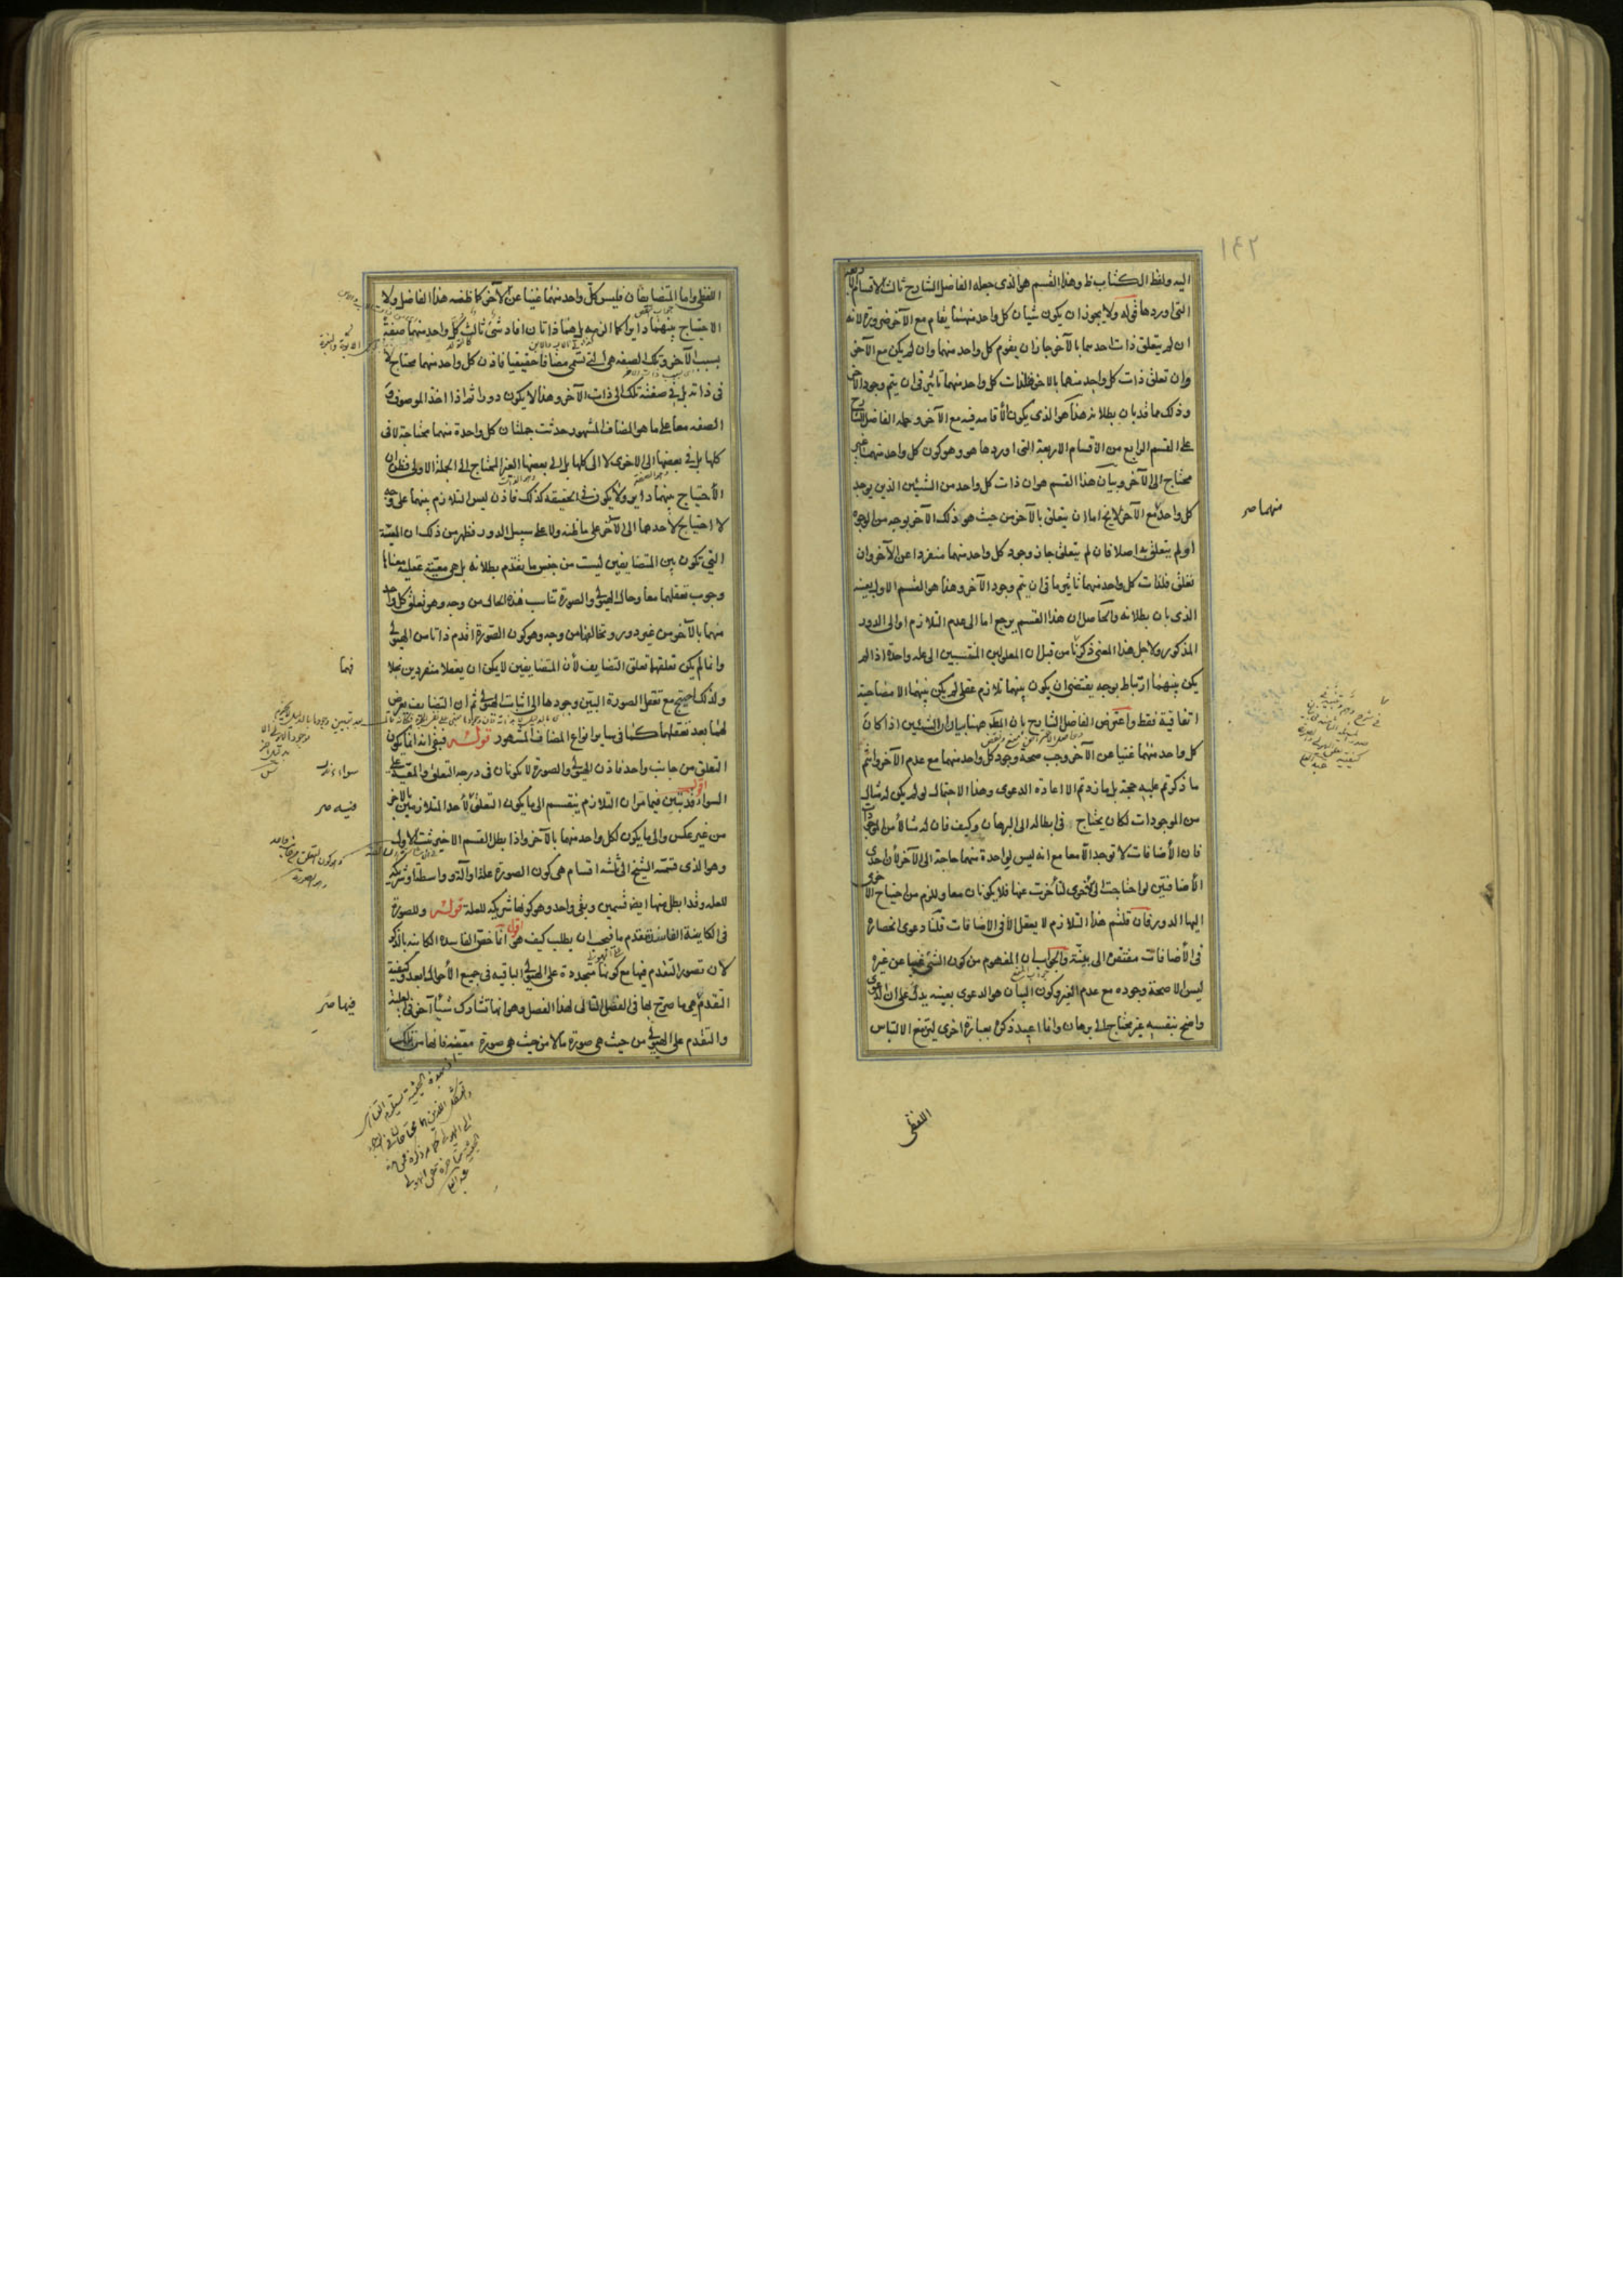 ١٤٢
اليه ولفظ الكتاب ظ وهذا القسم هو الذى جعله الفاضل الشارح ثالث الاقسام الاربعة
التى اوردها قوله ولا يجوز ان يكون شيئان كل واحد منهما يقام مع الآخر ضرورة لانه
ان لم يتعلق ذات احدهما بالآخر جاز ان يقوم كل واحد منهما وان لم يكن مع الآخر
وان تعلق ذات كل واحد منهما بالاخر فلذات كل واحد منهما تاثير فى ان يتم وجود الآخر
وذلك مما قد بان بطلانه هذا هو الذى يكون الاقامه فيه مع الآخر وحمله الفاضل الشارح
على القسم الرابع من الاقسام الاربعة التى اوردها هو وهو كون كل واحد منهما غير
محتاج الى الآخر وبيان هذا القسم هو ان ذات كل واحد من الشيئين الذين يوجد
كل واحد مع الآخر لايخ اما ان يتعلق بالآخر من حيث هو ذلك الآخر بوجه من الوجوه
او لم يتعلق به اصلا فان لم يتعلق جاز وجود كل واحد منهما منفردا عن الآخر وان
تعلق فلذات كل واحد منهما تاثير ما فى ان يتم وجود الآخر وهذا هو القسم الاول بعينه
الذى بان بطلانه والحاصل ان هذا القسم يرجع اما الى عدم التلازم او الى الدور
المذكور ولاجل هذا المعنى ذكرنا من قبل ان المعلولين المنتسبين الى علة واحدة اذا لم
يكن بينهما ارتباط بوجه يقتضى ان يكون بينهما تلازم عقلى لم يكن بينهما الا مصاحبة
اتفاقية فقط واعترض الفاضل الشارح بان المط ههنا بيان ان الشيئين اذا كان
كل واحد منهما غنيا عن الآخر وجب صحة وجود كل واحد منهما مع عدم الآخر وانتم
ما ذكرتم عليه حجة بل ما زدتم الا اعادة الدعوى وهذا الاحتمال لو لم يكن له مثال
من الموجودات لكان يحتاج فى ابطاله الى البرهان وكيف فان له مثالا من الموجودات
فان الأضافات لا توجد الا معا مع انه ليس لواحدة منهما حاجة الى الآخر لأن احدى
الأضافتين لو احتاجت الى الأخرى لتأخرت عنها فلا يكونان معا ولزم من احتياج الاخرى
اليها الدور فان قلتم هذا التلازم لا يعقل الا فى الاضافات قلنا دعوى انحصاره
فى الأضافات مفتقرة الى بينة والجواب ان المفهوم من كون الشئ غنيا عن غيره
ليس الا صحة وجوده مع عدم الغير وكون البيان هو الدعوى بعينه يدل على ان الدعوى
واضح بنفسه غير محتاج الى برهان وانما اعيد ذكره بعبارة اخرى ليرتفع الالتباس
منهما صر
اللفظى
اللفظى واما المتضايفان فليس كل واحد منهما غنيا عن الآخر كما ظنه هذا الفاضل ولا
الاحتياج بينهما دايرا كما الزمه بل هما ذاتان افاد شئ ثالث كل واحد منهما صفة
بسبب الآخر وتلك الصفه هى التى تسمى مضافا حقيقيا فاذن كل واحد منهما محتاج لا
فى ذاته بل فى صفته تلك الى ذات الآخر وهذا لا يكون دورا ثم اذا اخذ الموصوف و
الصفه معا على ما هو المضاف المشهور حدثت جملتان كل واحدة منهما محتاجة لا فى
كلها بل فى بعضها الى الاخرى لا الى كلها بل الى بعضها الغير المحتاج الى الجملة الاولى فظن ان
الأحتياج بينهما داير ولا يكون فى الحقيقه كذلك فاذن ليس التلازم بينهما على وجه
لا احتياج لاحدهما الى الآخر على ما ظنه ولا على سبيل الدور فظهر من ذلك ان المعية
التى تكون بين المتضايفين ليست من جنس ما تقدم بطلانه بل هى معية عقلية معناها
وجوب تعقلهما معا وحال الهيولى والصورة تناسب هذه الحال من وجه وهو تعلق كل واحد
منهما بالآخر من غير دور وتخالفها من وجه وهو كون الصورة اقدم ذاتا من الهيولى
وانما لم يكن تعلقهما تعلق التضايف لأن المتضايفين لا يمكن ان يعقلا منفردين بخلا
ولذلك احتيج مع تعقل الصورة البين وجودها الى اثبات الهيولى ثم ان التضايف يعرض
لهما بعد تعقلهما كما فى ساير انواع المضاف المشهور قوله فبقى انه انما يكون
التعلق من جانب واحد فاذن الهيولى والصورة لا يكونان فى درجة التعلق والمعية على
السواء اقول قد تبين فيما مر ان التلازم ينقسم الى ما يكون التعلق لأحد المتلازمين بالآخر
من غير عكس والى ما يكون لكل واحد منهما بالآخر واذا بطل القسم الاخير ثبت الاول
وهو الذى قسمه الشيخ الى ثلثة اقسام هى كون الصورة علة او آلة وواسطة او شريكة
للعلة وقد ابطل منها ايضا قسمين وبقى واحد وهو كونها شريكه للعلة قوله وللصورة
فى الكاينة الفاسدة تقدم ما فيجب ان يطلب كيف هو اقول انما خص الفاسدة الكاينة بالذكر
لان تصور التقدم فيها مع كونها متجددة على الهيولى الباقية فى جميع الأحوال ابعد وكيفية
التقدم هى ما صرح بها فى الفصل التالى لهذا الفصل وهو انها تشارك شيئا آخر فى العلية
والتقدم على الهيولى من حيث هى صورة ما لا من حيث هى صورة معينة فانها من تلك
فيهما
سواء
فيه صر
فيها صر